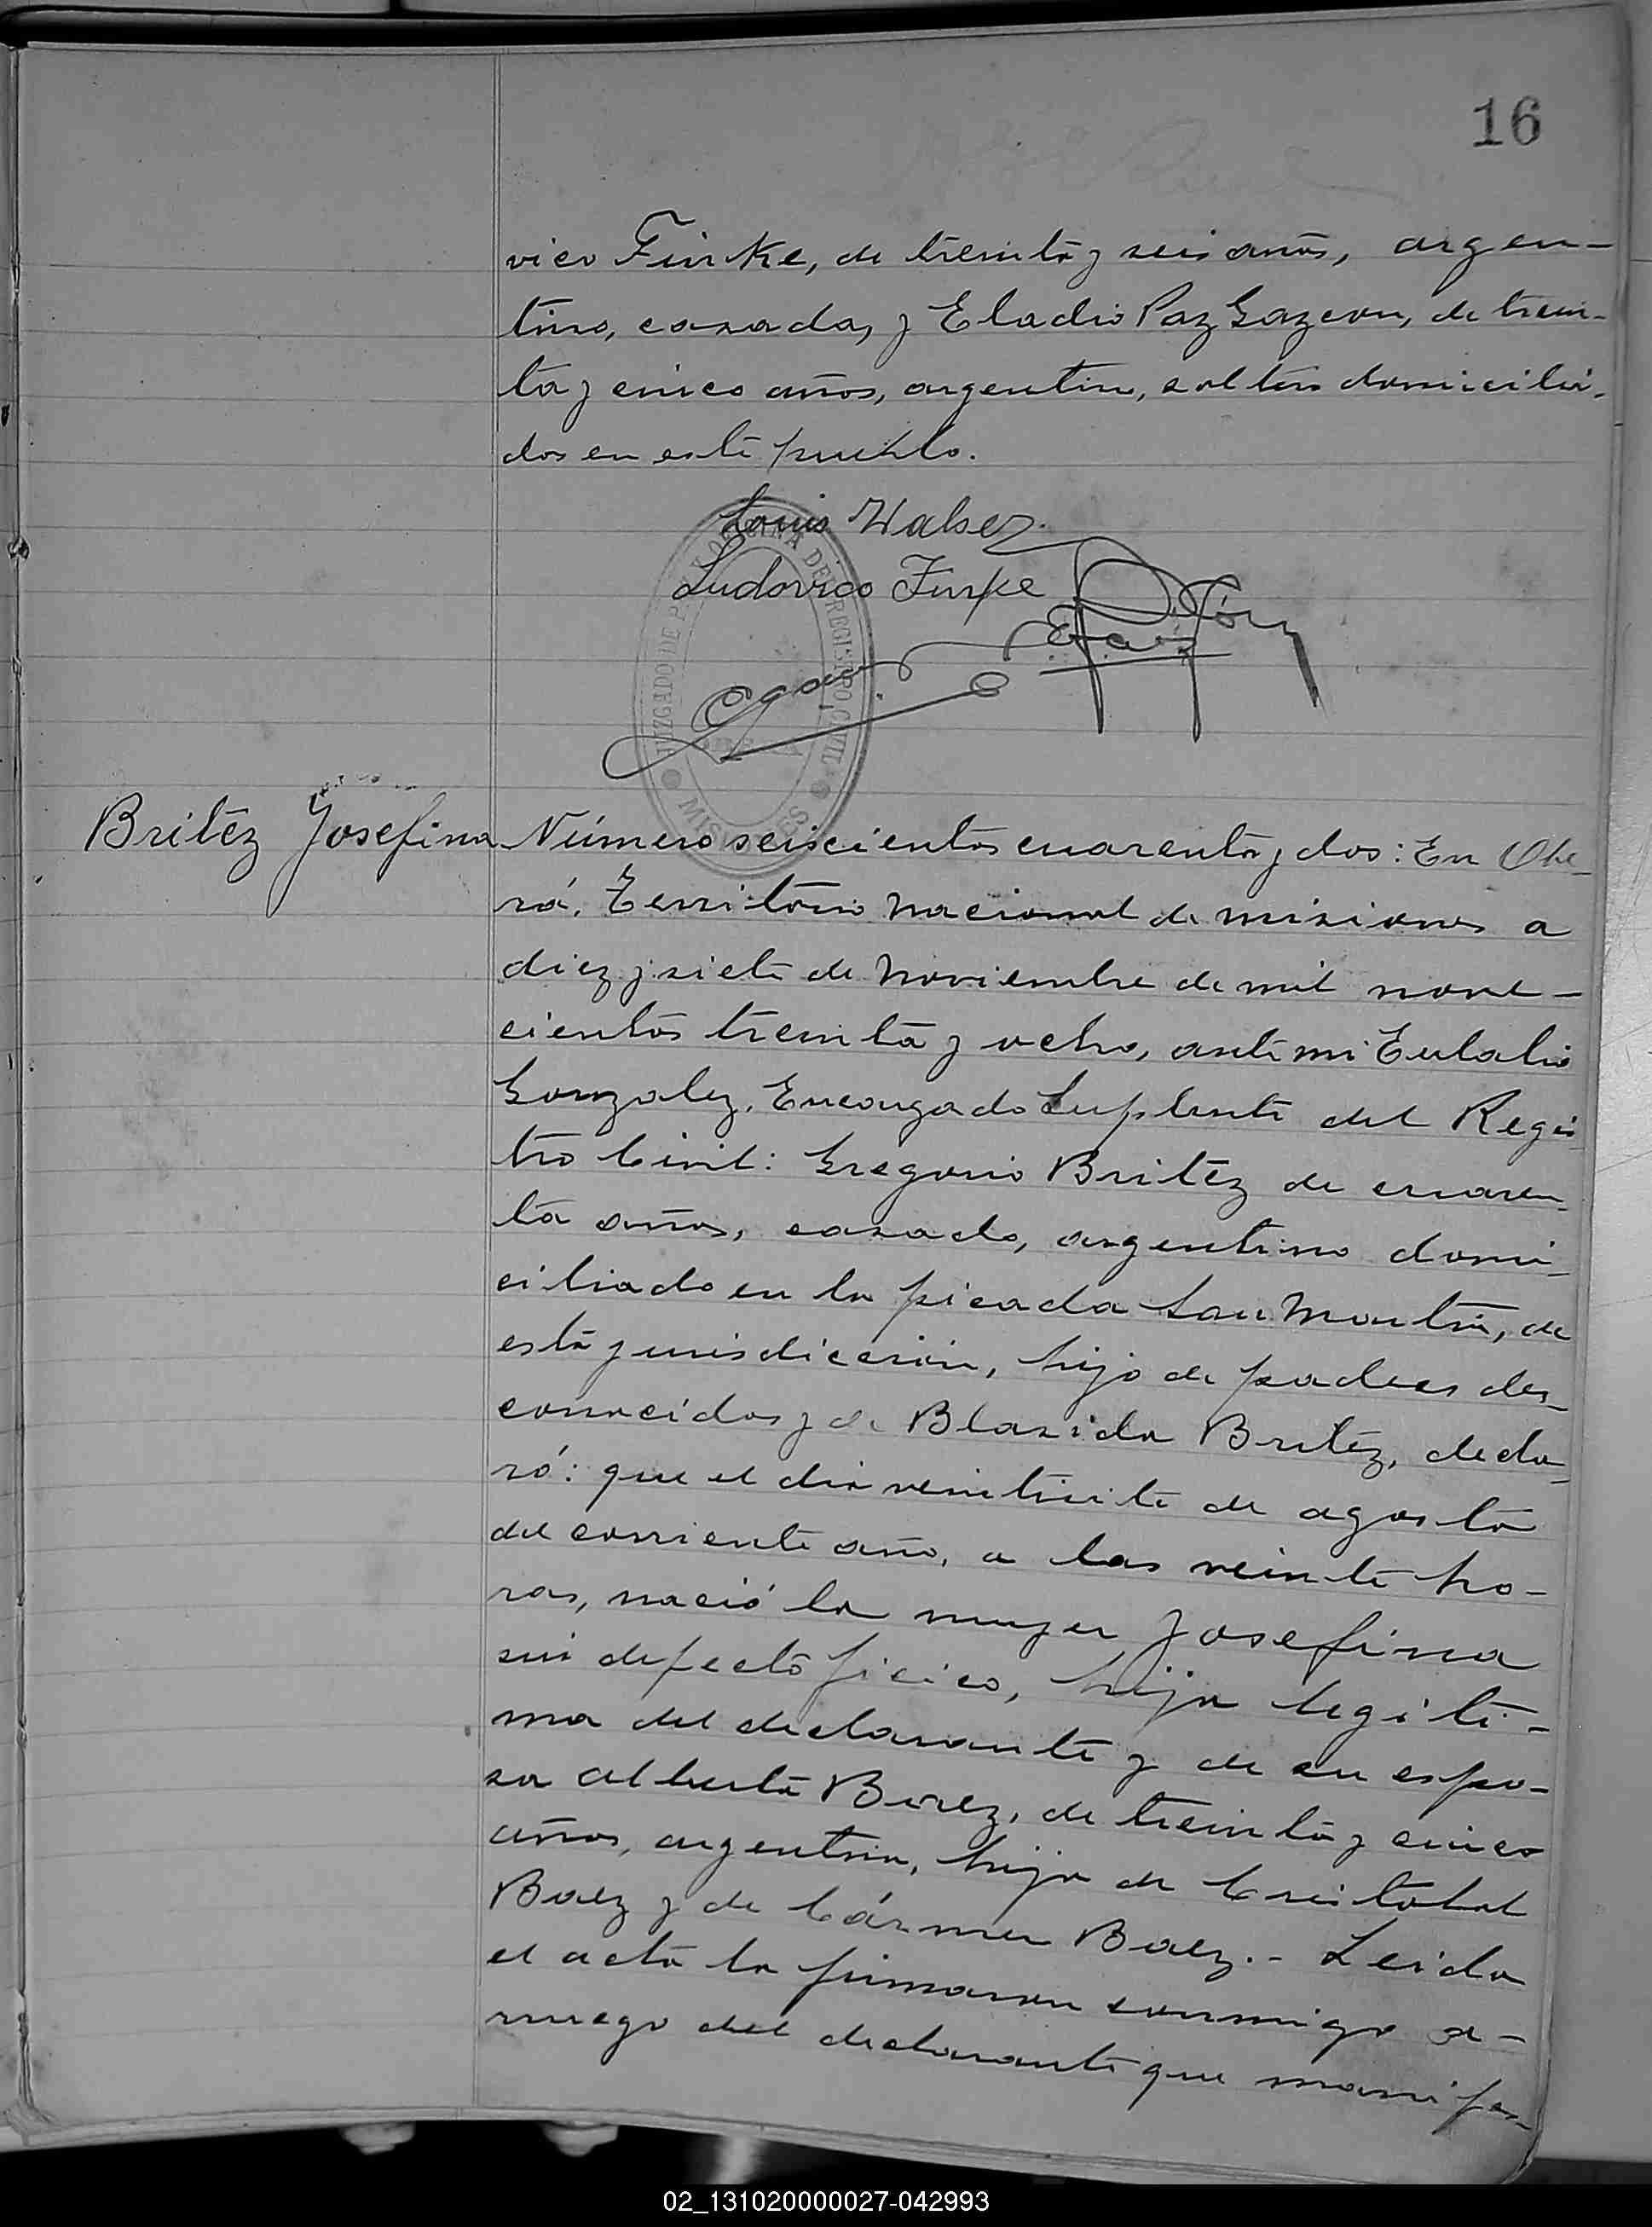 16
vico Finke, de treinta y seis años, argen-
tino, casado, y Eladio Paz Gazcon, de trein-
ta y cinco años, argentino, soltero domicilia-
dos en este pueblo.
Louis Walser
Ludovico Finke
JUZGADO DE PAZ Y OFICINA DEL REGISTRO CIVIL
MISIONES
Britéz Josefina
Número seiscientos cuarenta y dos: En Obe-
rá, Territorio Nacional de Misiones a
diez y siete de Noviembre de mil nove-
cientos treinta y ocho, ante mi Eulalio
Gonzalez, Encargado Suplente del Regis
tro Civil: Gregorio Britéz de cuaren-
ta años, casado, argentino domi-
ciliado en la picada San Martín, de
esta jurisdicción, hijo de padres des-
conocidos y de Blasida Britéz, decla-
ró: que el dia veintisiete de agosto
del corriente año, a las veinte ho-
ras, nació la mujer Josefina
sin defecto ficico, hija legiti-
ma del declarante y de su espo-
sa Alberta Baez, de treinta y cinco
años, argentina, hija de Cristobal
Baez y de Cármen Baez.- Leida
el acta la firmaron conmigo a-
ruego del declarante que manifes-
02_131020000027-042993